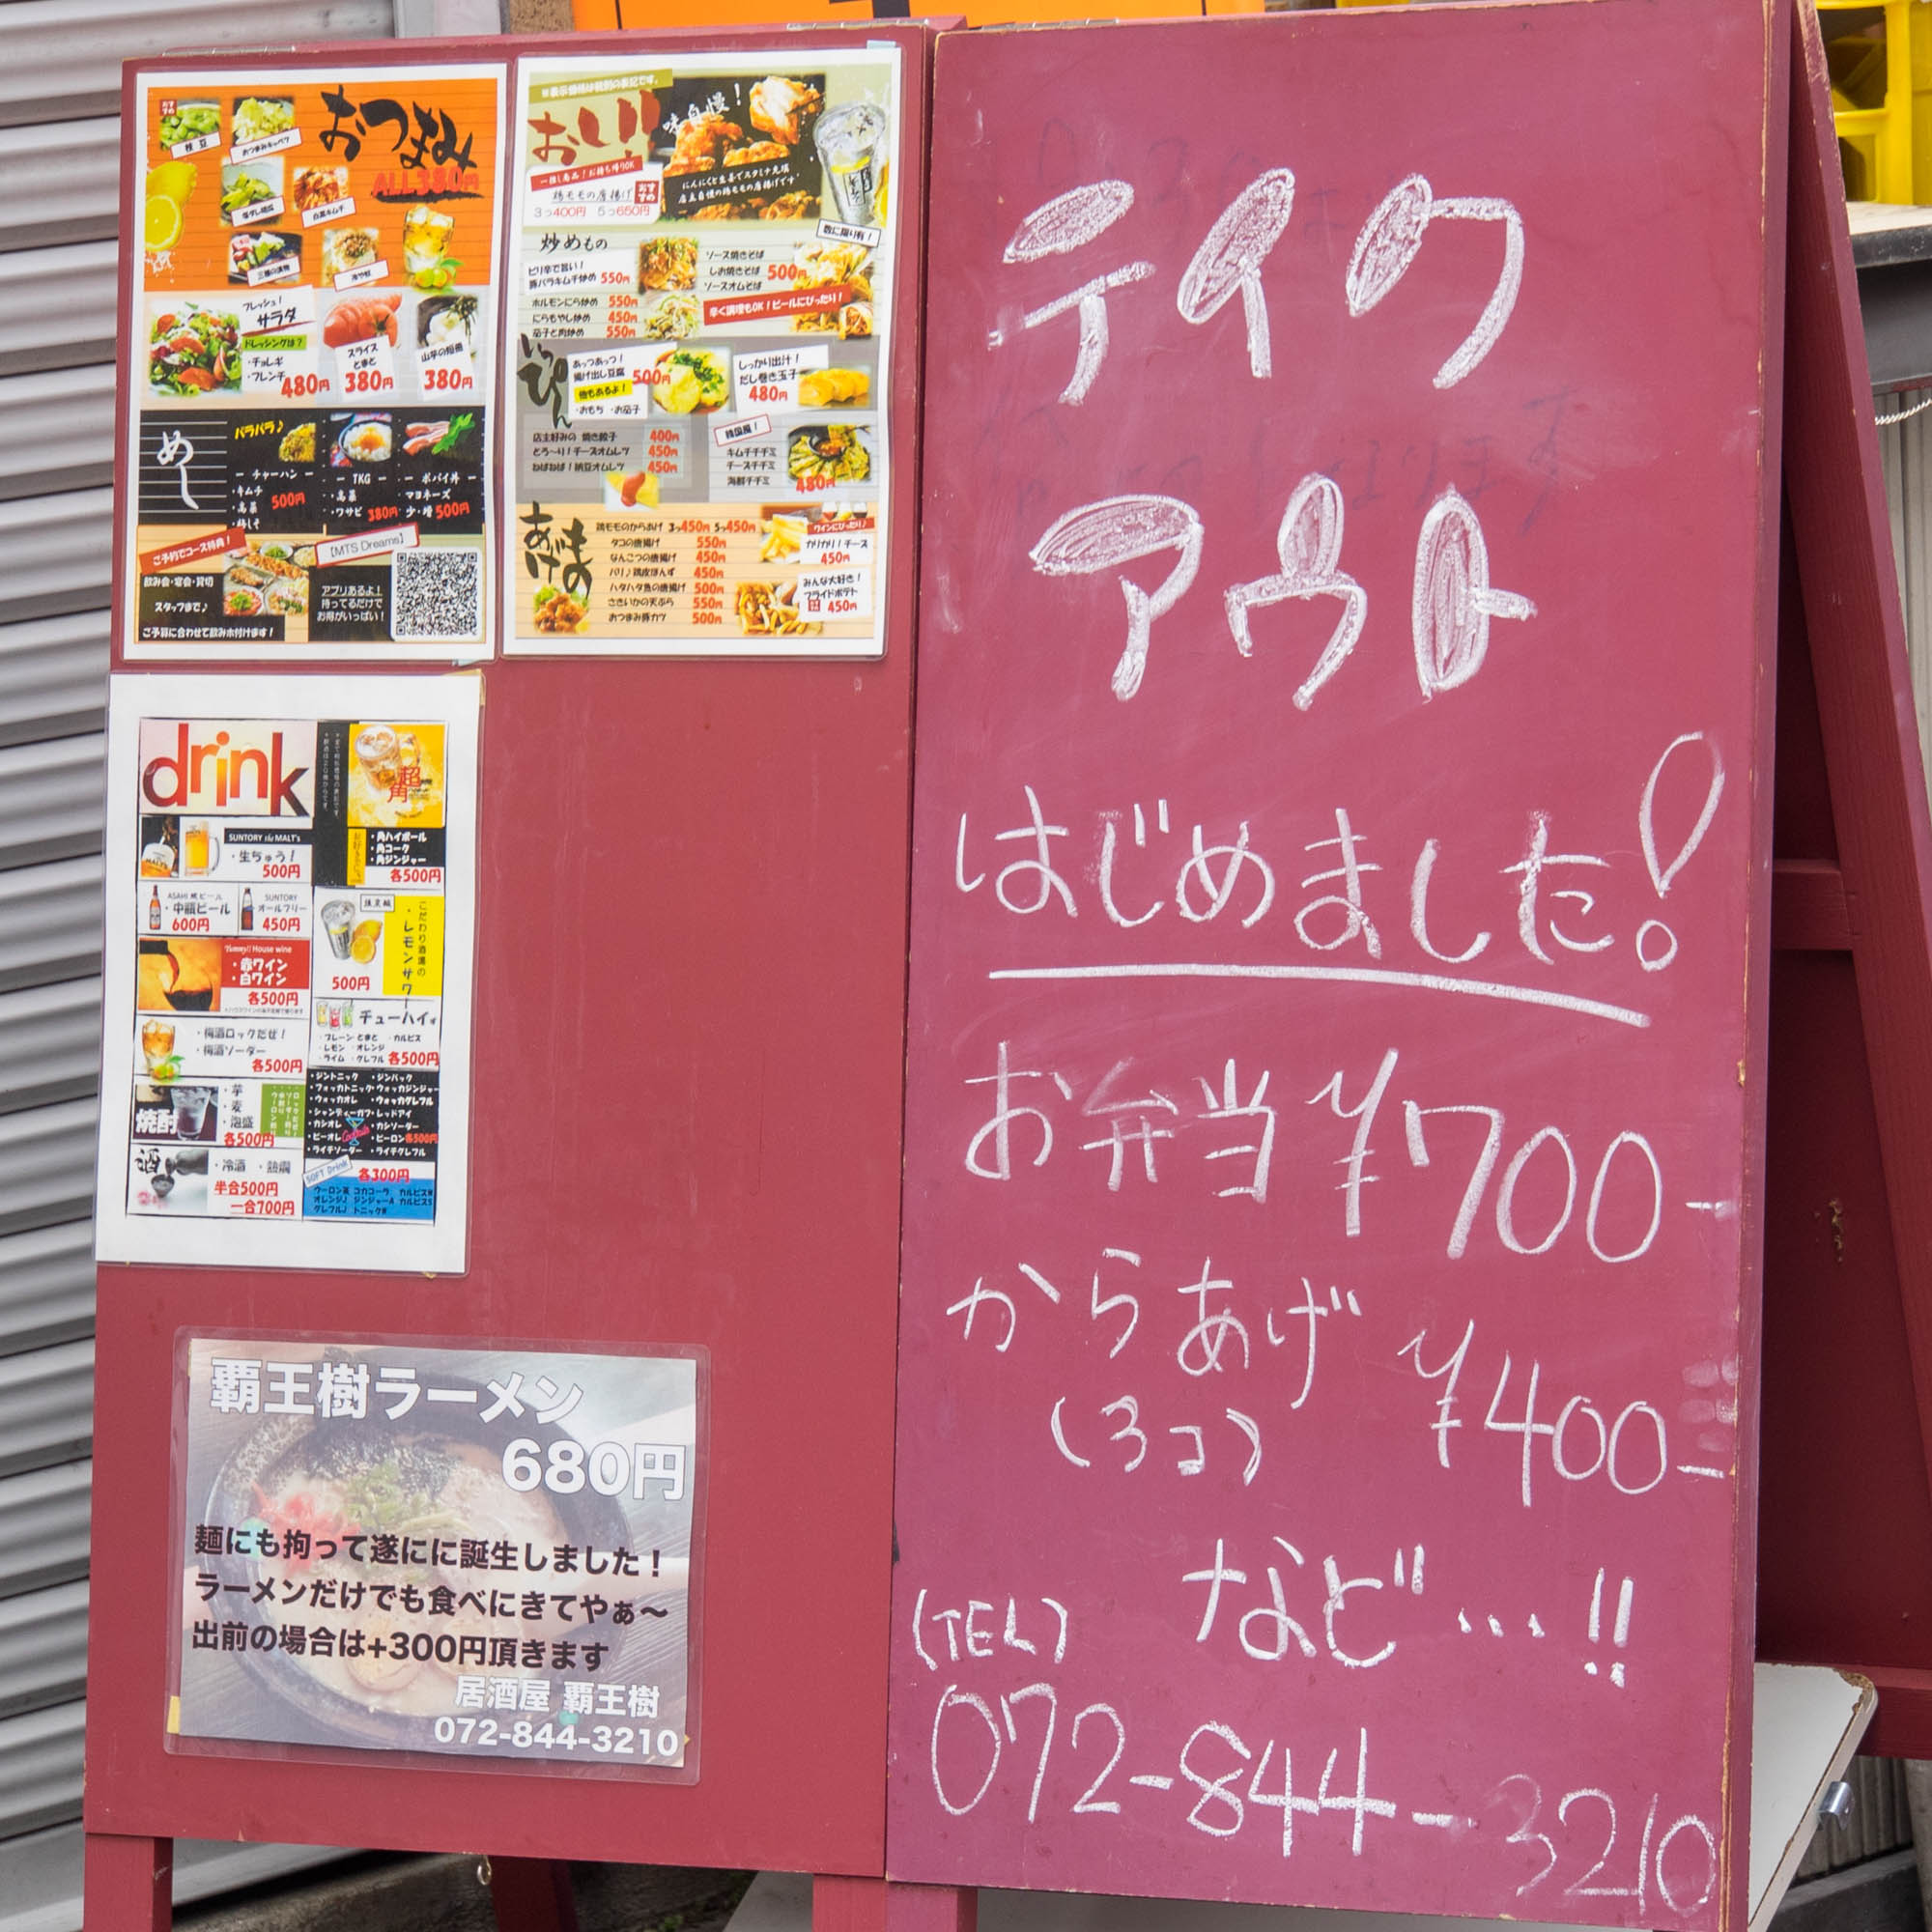 おつまみ
ALL380円
おすすめ
枝豆
おつまみキャベツ
塩ダレ胡瓜
白菜キムチ
三種の漬物
冷や奴
フレッシュ!
サラダ
ドレッシングは?
・チョレギ
・フレンチ
480円
スライス
とまと
380円
山芋の短冊
380円
めし
パラパラ♪
ー チャーハン ー
・キムチ
・高菜
・梅しそ
500円
ー TKG ー
・高菜
・ワサビ
380円
ー ポパイ丼 ー
・マヨネーズ
少・増 500円
ご予約でコース特典!
飲み会・宴会・貸切
スタッフまで♪
ご予算に合わせて飲みホ付けます!
【MTS Dreams】
アプリあるよ!
持ってるだけで
お得がいっぱい!
※表示価格は税別の表記です。
味自慢!
一推し商品!お持ち帰りOK
鶏モモの唐揚げ
おすすめ
3つ400円 5つ650円
にんにくと生姜でスタミナ充填
店主自慢の鶏モモの唐揚げです
数に限り有!
炒めもの
ピリ辛で旨い!
豚バラキムチ炒め 550円
ホルモンにら炒め 550円
にらもやし炒め 450円
茄子と肉炒め 550円
ソース焼きそば
しお焼きそば 500円
ソースオムそば
辛く調理もOK!ビールにぴったり!
いっぴん
あっつあっつ!
揚げ出し豆腐 500円
他もあるよ!
・おもち ・お茄子
しっかり出汁!
だし巻き玉子
480円
店主好みの 焼き餃子 400円
とろ〜り!チーズオムレツ 450円
ねばねば!納豆オムレツ 450円
韓国風!
キムチチヂミ
チーズチヂミ
海鮮チヂミ
480円
あげもの
鶏モモのからあげ 3つ450円 5つ450円
タコの唐揚げ 550円
なんこつの唐揚げ 450円
パリ♪鶏皮ぽんず 450円
ハタハタ魚の唐揚げ 500円
さきいかの天ぷら 550円
おつまみ豚カツ 500円
ワインにぴったり♪
カリカリ!チーズ
450円
みんな大好き!
フライドポテト
450円
drink
超角
・角ハイボール
・角コーク
・角ジンジャー
各500円
SUNTORY the MALT's
・生ちゅう!
500円
ASAHI 瓶ビール
・中瓶ビール
600円
SUNTORY
オールフリー
450円
こだわり酒場の
・レモンサワー
500円
Yummy!! House wine
・赤ワイン
・白ワイン
各500円
チューハイ
・プレーン ・とまと ・カルピス
・レモン ・オレンジ
・ライム ・グレフル 各500円
・梅酒ロックだぜ!
・梅酒ソーダー
各500円
焼酎
・芋
・麦
・泡盛
各500円
・ジントニック ・ジンバック
・ウォッカトニック・ウォッカジンジャー
・ウォッカオレ ・ウォッカグレフル
・シャンディーガフ・レッドアイ
・カシオレ ・カシソーダー
・ピーオレ ・ピーロン 各500円
・ライチソーダー ・ライチグレフル
酒
・冷酒 ・熱燗
半合500円
一合700円
SOFT Drink
各300円
ウーロン茶 コカコーラ カルピスW
オレンジJ ジンジャーA カルピスS
グレフルJ トニックW
覇王樹ラーメン
680円
麺にも拘って遂にに誕生しました!
ラーメンだけでも食べにきてやぁ〜
出前の場合は+300円頂きます
居酒屋 覇王樹
072-844-3210
テイク
アウト
はじめました!
お弁当 ¥700-
からあげ ¥400-
(3コ)
など…!!
(TEL)
072-844-3210